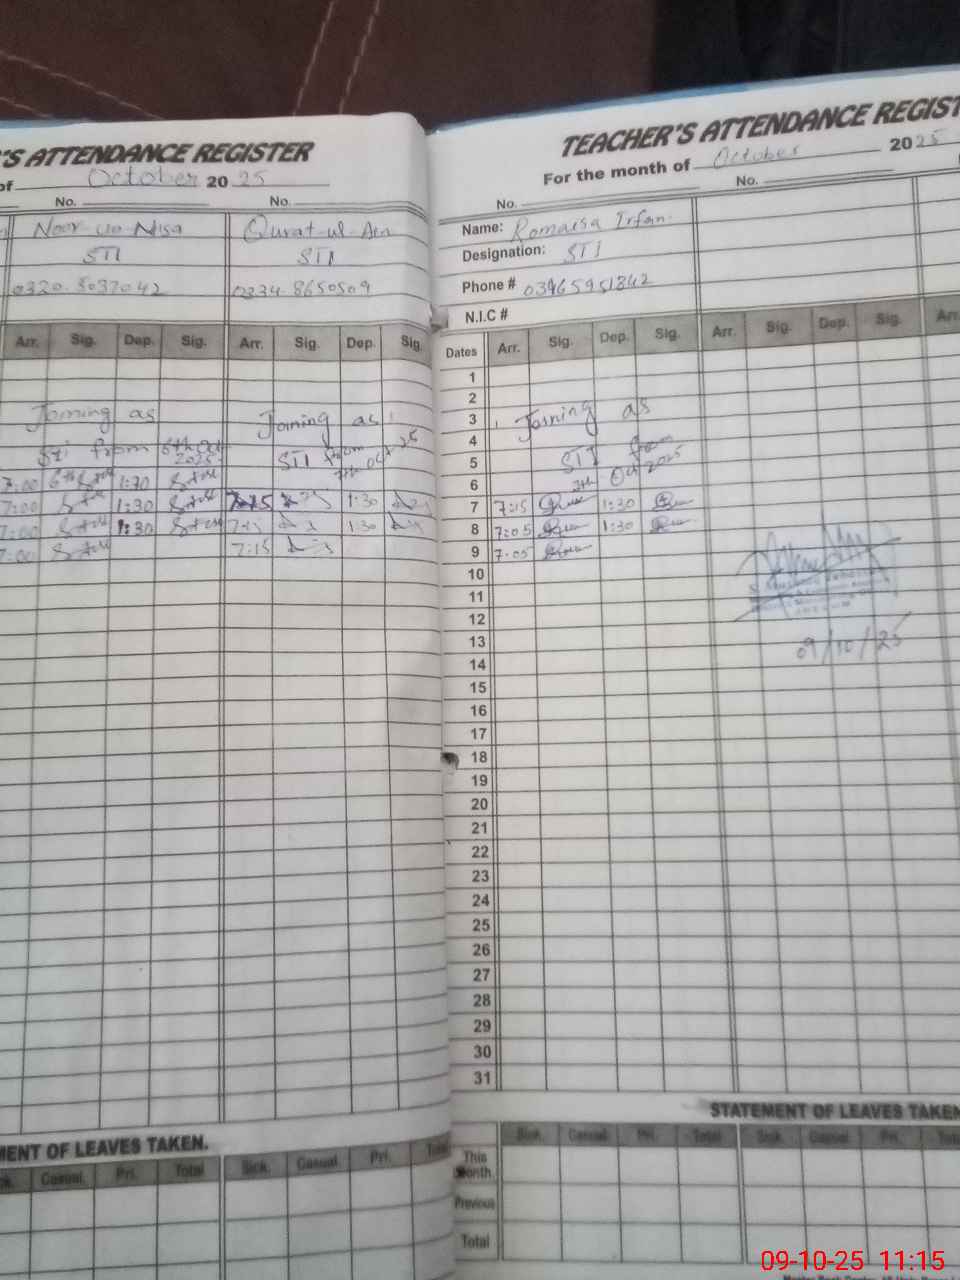 'S ATTENDANCE REGISTER
of October 2025
No. No.
Noor-un-Nisa Qurat-ul-Ain
STI STI
0320.5037042 0334.8650509
Arr. Sig. Dep. Sig. Arr. Sig. Dep. Sig.
Joining as Joining as
STI from 6th Oct 2025 STI from 7th Oct 25
7:00 6th 1:30
7:00 1:30 7:15 1:30
7:00 1:30 7:15 1:30
7:00 7:15
MENT OF LEAVES TAKEN.
Casual. Pri. Total Sick. Casual. Pri. Total
TEACHER'S ATTENDANCE REGIST
For the month of October 2025
No. No.
Name: Romaisa Irfan.
Designation: STI
Phone # 03465951842
N.I.C #
Dates Arr. Sig. Dep. Sig. Arr. Sig. Dep. Sig. Arr.
1
2
3 Joining as
4
5 STI from
6 7th Oct 2025
7 7:15 1:30
8 7:05 1:30
9 7:05
10
11
12
13 09/10/25
14
15
16
17
18
19
20
21
22
23
24
25
26
27
28
29
30
31
STATEMENT OF LEAVES TAKEN
Sick. Casual. Pri. Total Sick. Casual. Pri. Total
This Month.
Previous
Total
09-10-25 11:15